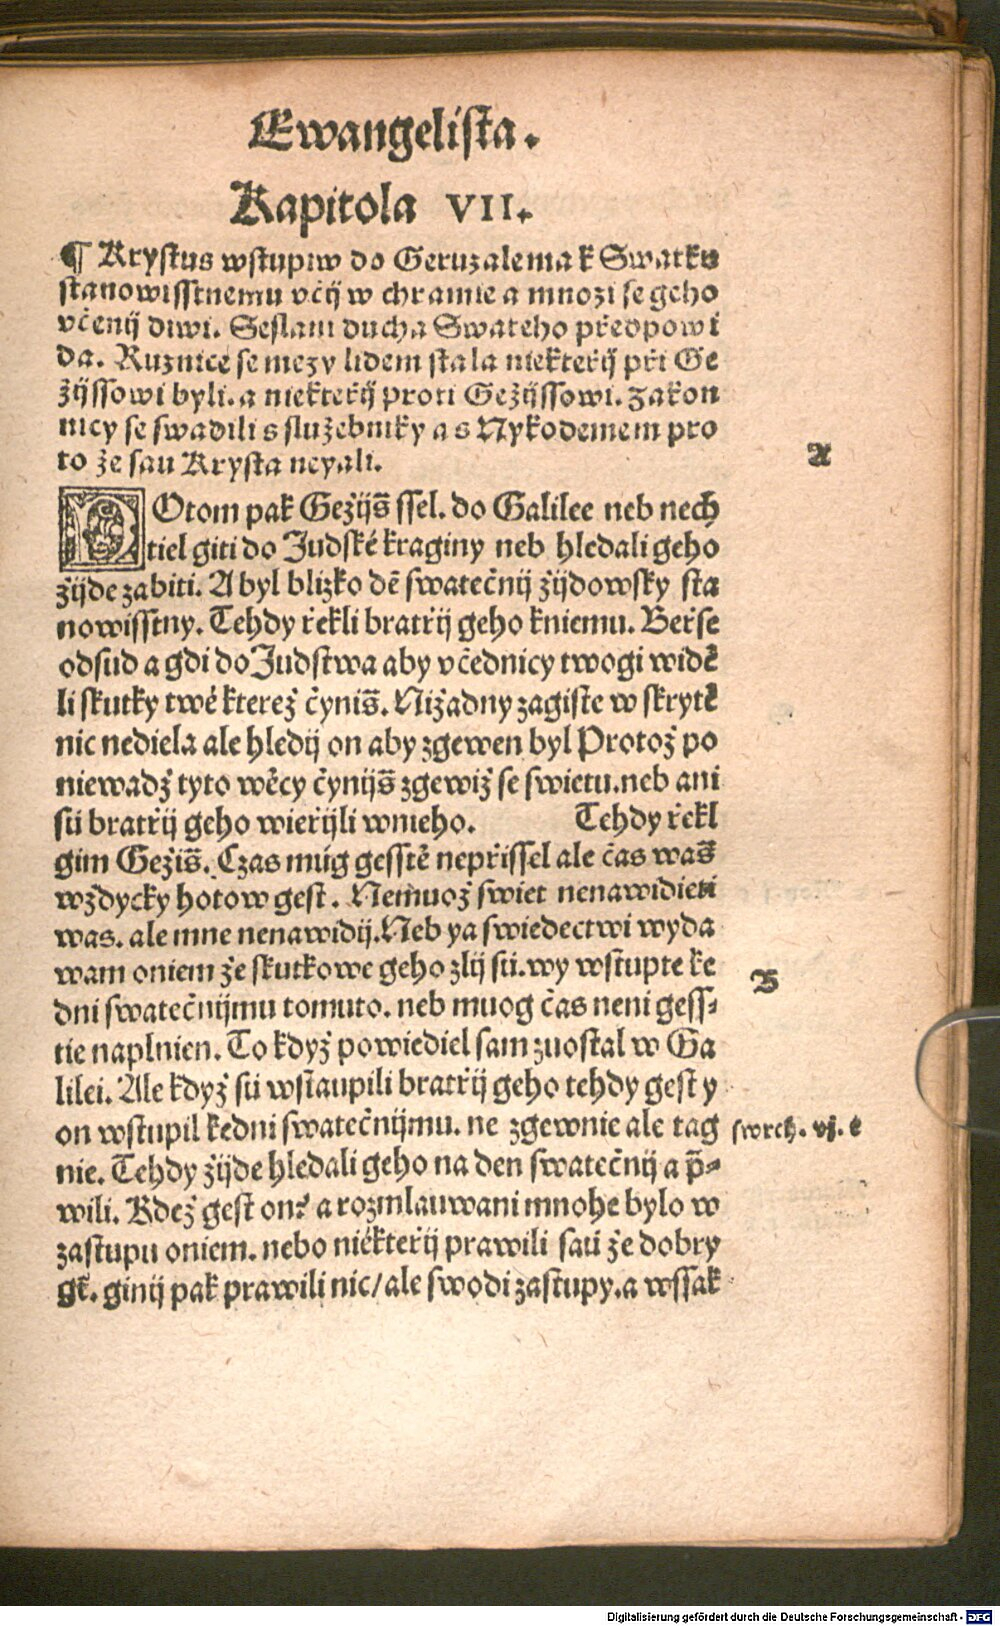 Ewangelista.
Kapitola VII.
¶ Krystus wstupiw do Geruzalema k Swatku
stanowisstnemu včij w chramie a mnozi se geho
včenij diwi. Seslani ducha Swateho předpowi
da. Ruznice se mezy lidem stala niekteřij při Ge
žijssowi byli. a niekteřij proti Gežijssowi. zakon
nicy se swadili s služebniky a s Nykodemem pro
to že sau Krysta neyali.
A
POtom pak Gežijs̃ ssel. do Galilee neb nech
tiel giti do Judské kraginy neb hledali geho
žijde zabiti. A byl blizko dẽ swatečnij žijdowsky sta
nowisstny. Tehdy řekli bratřij geho kniemu. Beřse
odsud a gdi do Judstwa aby včednicy twogi widě
li skutky twé kterež čynis̃. Nižadny zagiste w skrytě
nic nediela ale hledij on aby zgewen byl Protož po
niewadž tyto wěcy čynijs̃ zgewiž se swietu. neb ani
sú bratřij geho wieřijli wnieho. Tehdy řekl
gim Gežis̃. Czas múg gesstě nepřissel ale čas was̃
wždycky hotow gest. Nemuož swiet nenawidieti
was. ale mne nenawidij. Neb ya swiedectwi wyda
wam oniem že skutkowe geho zlij sú. wy wstupte ke
B
dni swatečnijmu tomuto. neb muog čas neni gess⸗
tie naplnien. To když powiediel sam zuostal w Ga
lilei. Ale když sú wstaupili bratřij geho tehdy gest y
on wstupil kedni swatečnijmu. ne zgewnie ale tag
swrch. vj. e
nie. Tehdy žijde hledali geho na den swatečnij a p̃⸗
wili. Kdež gest on? a rozmlauwani mnohe bylo w
zastupu oniem. nebo niékteřij prawili saú že dobry
gt̃. ginij pak prawili nic/ ale swodi zastupy. a wssak
Digitalisierung gefördert durch die Deutsche Forschungsgemeinschaft - DFG